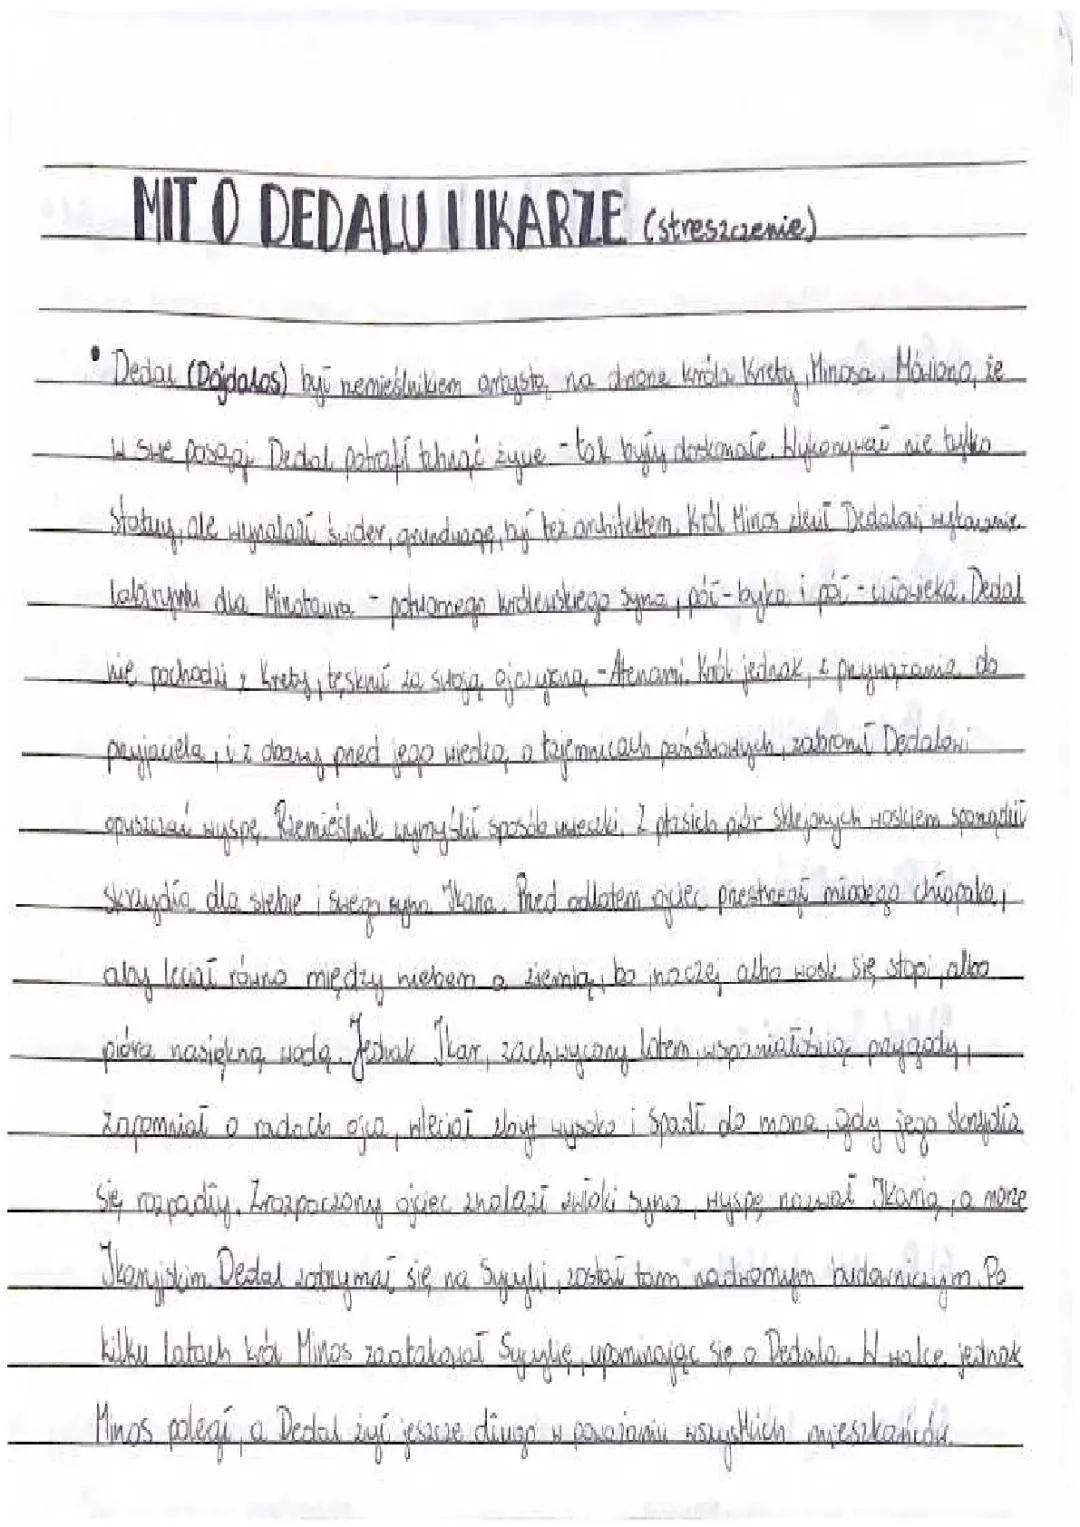 MIT O DEDALU I IKARZE (streszczenie)
• Dedal (Dajdalos) był rzemieślnikiem artystą na dworze króla Krety, Minosa. Mówiono, że
w swe posągi Dedal potrafił tchnąć życie - tak były doskonałe. Wykonywał nie tylko
statuy, ale wynalazł świder, grundwagę, był też architektem. Król Minos zlecił Dedalowi wykonanie
labiryntu dla Minotaura - potwornego królewskiego syna, pół-byka i pół-człowieka. Dedal
nie pochodził z Krety, tęsknił za swoją ojczyzną - Atenami. Król jednak, z przywiązania do
przyjaciela, i z obawy przed jego wiedzą o tajemnicach państwowych, zabronił Dedalowi
opuszczać wyspę. Rzemieślnik wymyślił sposób ucieczki. Z ptasich piór sklejonych woskiem sporządził
skrzydła dla siebie i swego syna Ikara. Przed odlotem ojciec przestrzegł młodego chłopaka,
aby leciał równo między niebem a ziemią, bo inaczej albo wosk się stopi, albo
pióra nasiękną wodą. Jednak Ikar, zachwycony lotem, wspaniałością przygody,
zapomniał o radach ojca, wleciał zbyt wysoko i spadł do morza, gdy jego skrzydła
się rozpadły. Zrozpaczony ojciec znalazł zwłoki syna, wyspę nazwał Ikarią, a morze
Ikaryjskim. Dedal zatrzymał się na Sycylii, został tam nadwornym budowniczym. Po
kilku latach król Minos zaatakował Sycylię, upominając się o Dedala. W walce jednak
Minos poległ, a Dedal żył jeszcze długo w poważaniu wszystkich mieszkańców.